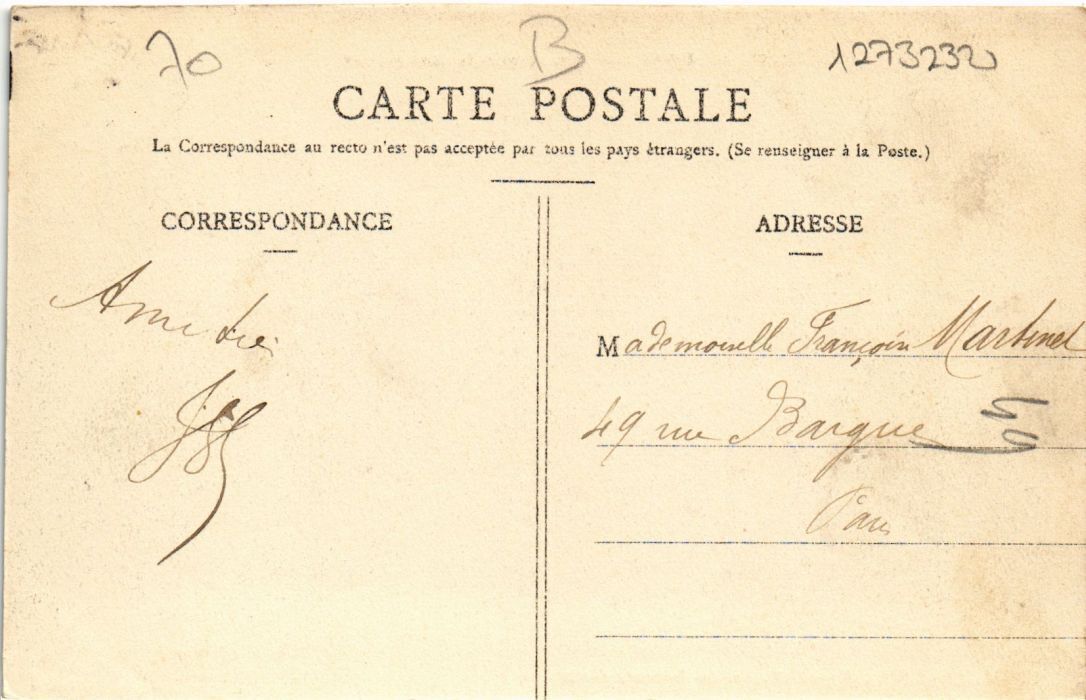 70
B
1273232
CARTE POSTALE
La Correspondance au recto n'est pas acceptée par tous les pays étrangers. (Se renseigner à la Poste.)
CORRESPONDANCE
ADRESSE
Mademoiselle Martinet
49 rue Bargue
Paris